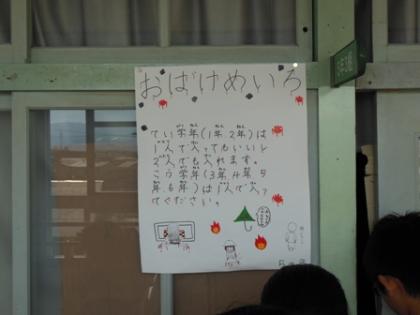 おばけめいろ
てい学年(1年.2年)は
1人で入ってもいいし
2人でも入れます。
こう学年(3年.4年.5
年.6年)は1人で入っ
てください。